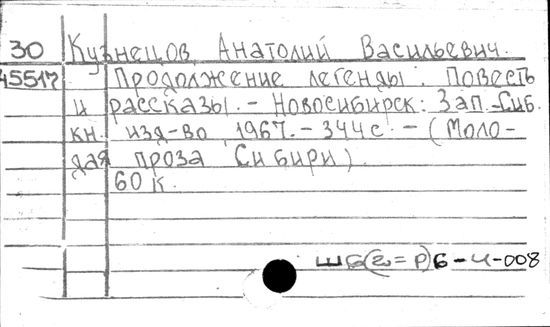 30 Кузнецов Анатолий Васильевич.
45517 Продолжение легенды. Повесть
и рассказы. - Новосибирск: Зап.-Сиб.
кн. изд-во 1967. - 344 с. - (Моло-
дая проза Сибири).
60 к.
Б-Ч-008